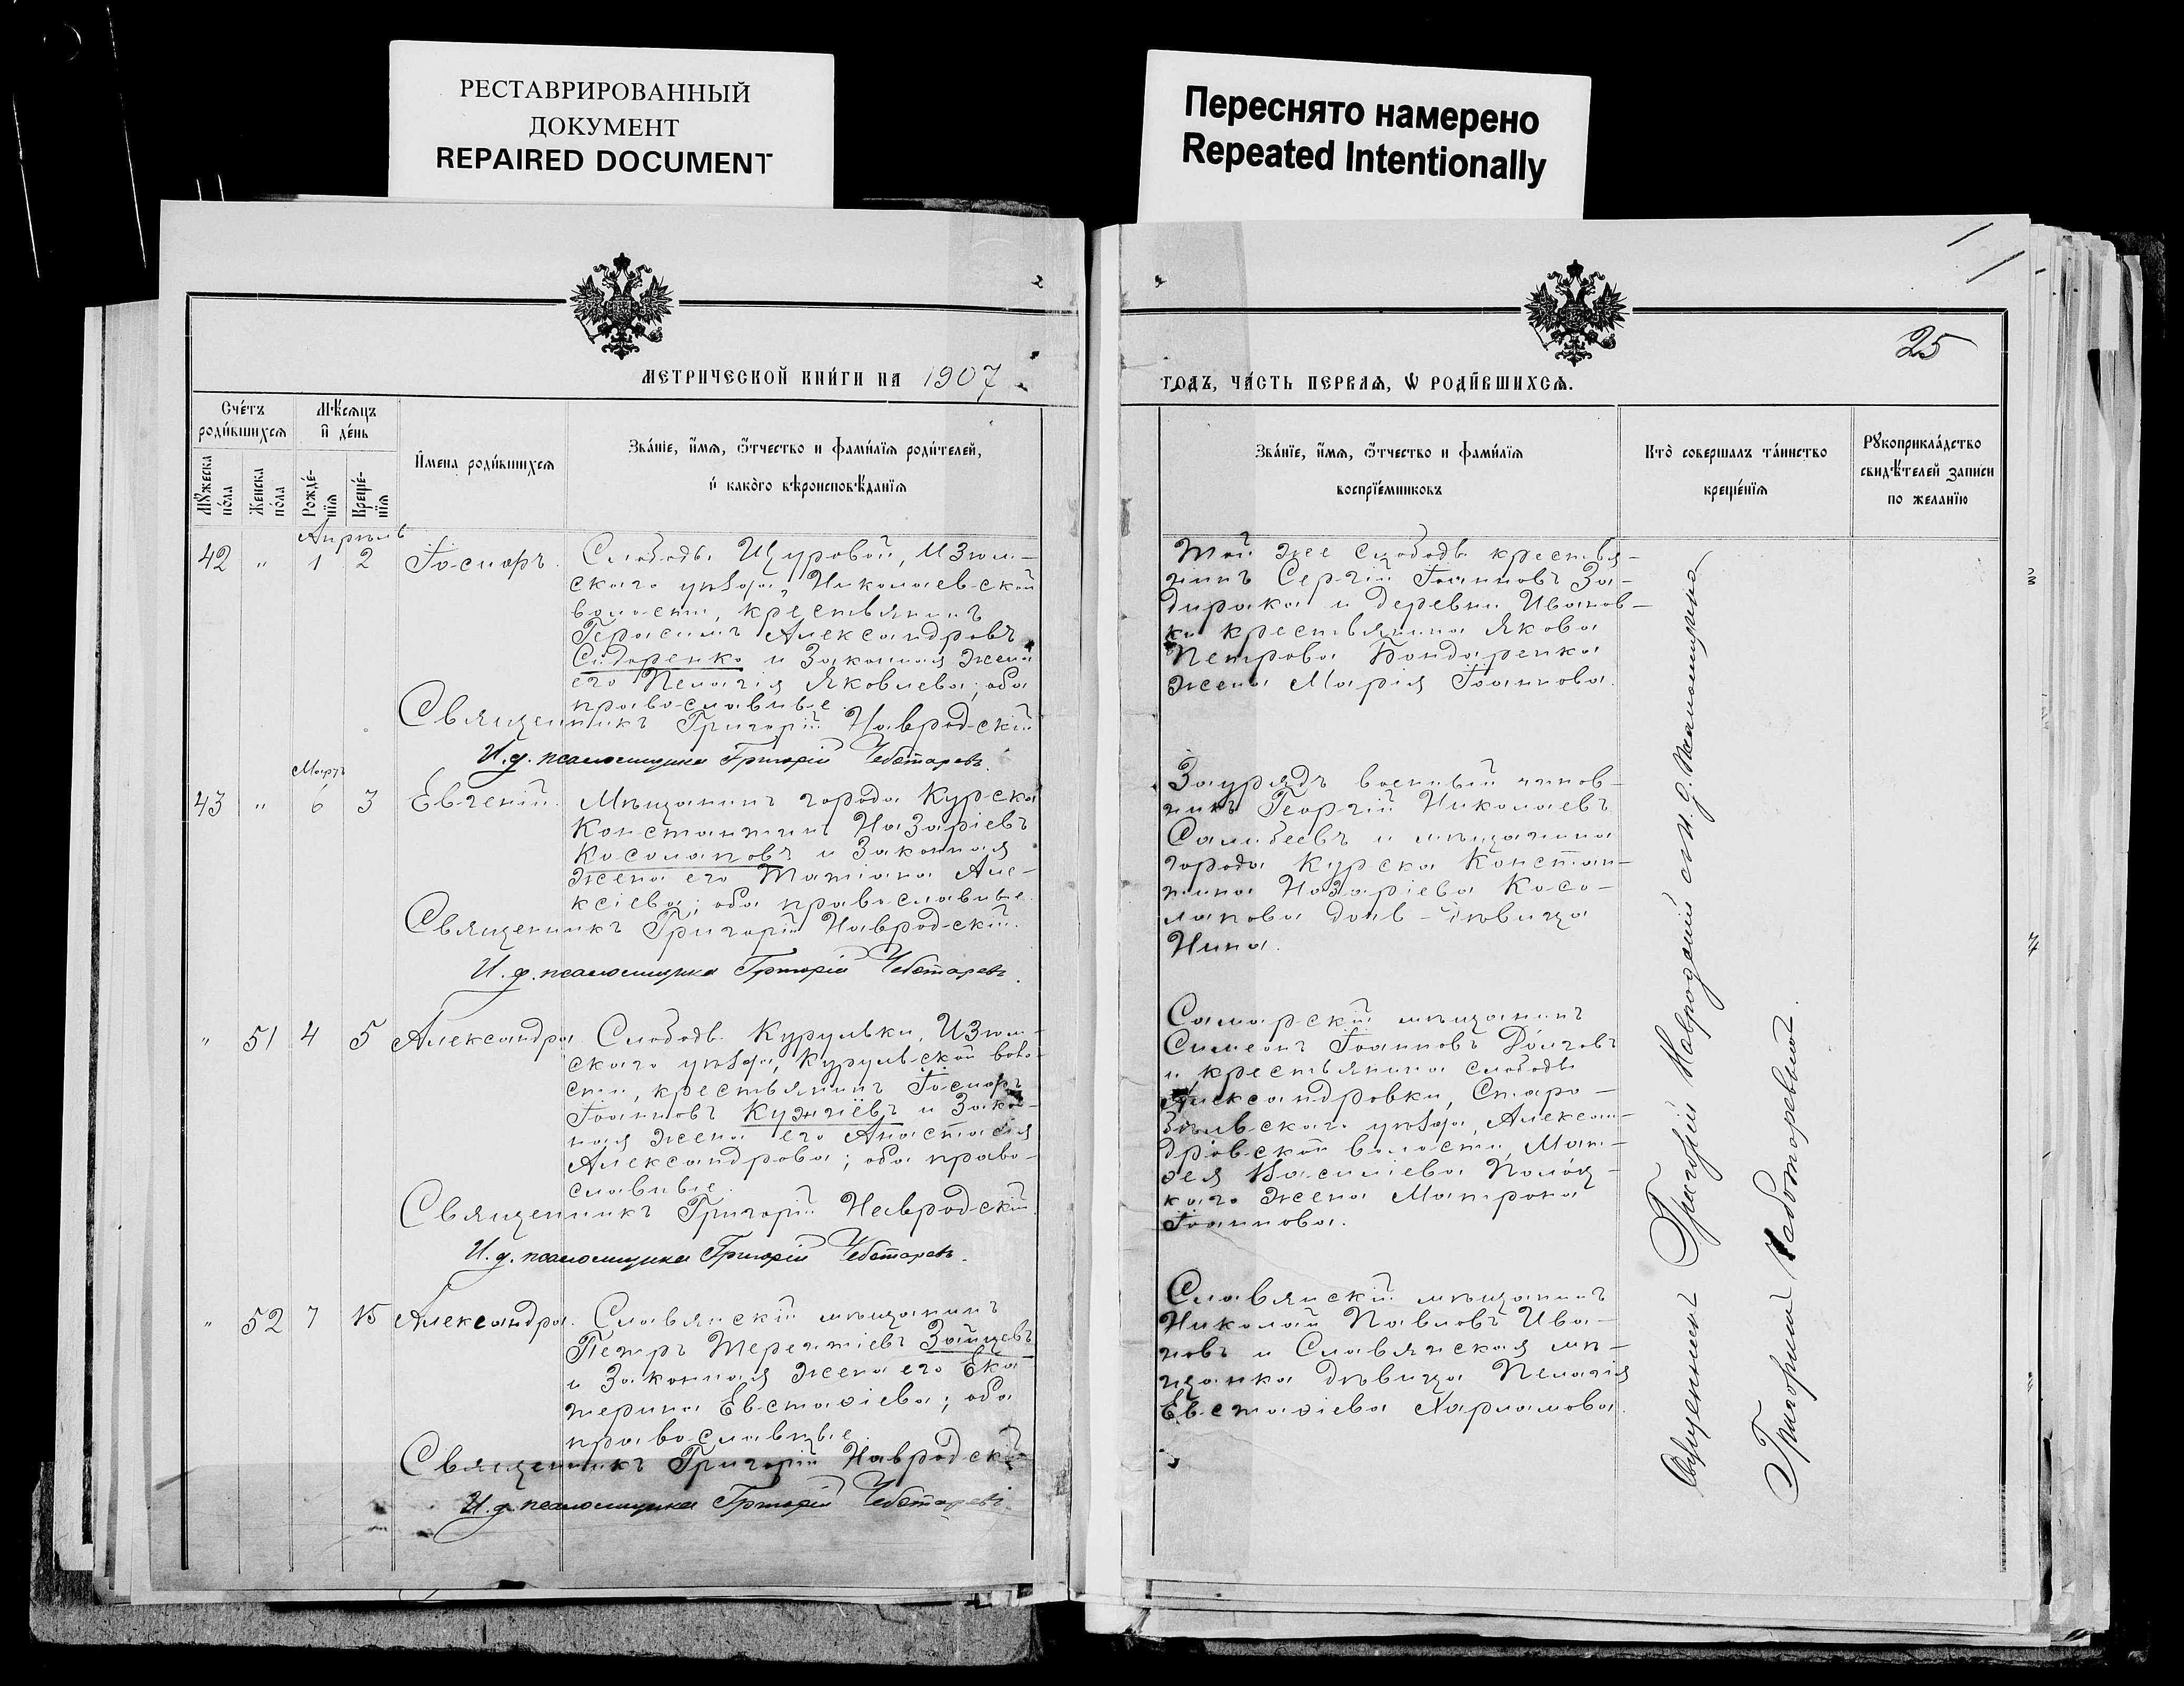 РЕСТАВРИРОВАННЫЙ
ДОКУМЕНТ
REPAIRED DOCUMENT
Переснято намерено
Repeated Intentionally
25
МЕТРИЧЕСКОЙ КНИ́ГИ НА 1907
ГОДЪ, ЧА́СТЬ ПЕРВАѦ, Ѡ РОДИ́ВШИХСѦ.
Сче́тъ
роди́вшихсѧ
Мѣ́сѧцъ
и҆ де́нь
Мꙋжеска
по́ла
Женска
по́ла
Рожде́-
нїѧ
Креще́-
нїѧ
И҆мена роди́вшихсѧ
Зва́нїе, и҆́мѧ, ѻ҆́тчество и фами́лїѧ роди́телей,
и҆ како́го вѣроисповѣ́данїѧ
Зва́нїе, и҆́мѧ, ѻ҆́тчество и фами́лїѧ
воспрїе́мниковъ
Кто̀ совершалъ та́инство
креще́нїѧ
Рꙋкоприкла́дство
свидѣ́телей записи
по жела́нїю
Апрѣль
42 " 1 2 Іосифъ.
Слободы Щуровой, Изюм-
скаго уѣзда, Николаевской
волости, крестьянинъ
Герасимъ Александровъ
Сидоренко и законная жена
его Пелагія Яковлева; оба
православные.
Священникъ Григорій Навродскій
И. д. псаломщика Григорій Чеботаревъ.
Той же слободы крестья-
нинъ Сергій Іоанновъ За-
дирака и деревни Иванов-
ки крестьянина Якова
Петрова Бондаренка
жена Марія Іоаннова.
Мартъ
43 " 6 3 Евгеній.
Мѣщанинъ города Курска
Константинъ Назаріевъ
Косолаповъ и законная
жена его Татіана Але-
ксіева; оба православные.
Священникъ Григорій Навродскій.
И. д. псаломщика Григорій Чеботаревъ.
Заурядъ военный чинов-
никъ Георгій Николаевъ
Салибеевъ и мѣщанина
города Курска Констан-
тина Назаріева Косо-
лапова дочь-дѣвица
Нина.
" 51 4 5 Александра.
Слободы Курульки, Изюм-
скаго уѣзда, Курульской воло-
сти, крестьянинъ Іосифъ
Іоанновъ Кужмёвъ и закон-
ная жена его Анастасія
Александрова; оба право-
славные.
Священникъ Григорій Навродскій
И. д. псаломщика Григорій Чеботаревъ.
Самарскій мѣщанинъ
Симеонъ Іоанновъ Долговъ
и крестьянина слободы
Александровки, Старо-
бѣльскаго уѣзда, Алексан-
дровской волости, Мат-
ѳея Василіева Полоц-
каго жена Матрона
Іоаннова.
" 52 7 15 Александра.
Славянскій мѣщанинъ
Петръ Терентіевъ Зайцевъ
и законная жена его Ека
терина Евстаѳіева; оба
православные.
Священникъ Григорій Навродскій
И. д. псаломщика Григорій Чеботаревъ
Славянскій мѣщанинъ
Николай Павловъ Ива-
новъ и Славянская мѣ-
щанка дѣвица Пелагія
Евстаѳіева Харламова.
Священникъ Григорій Навродскій съ и. д. псаломщика
Григоріемъ Чеботаревымъ.